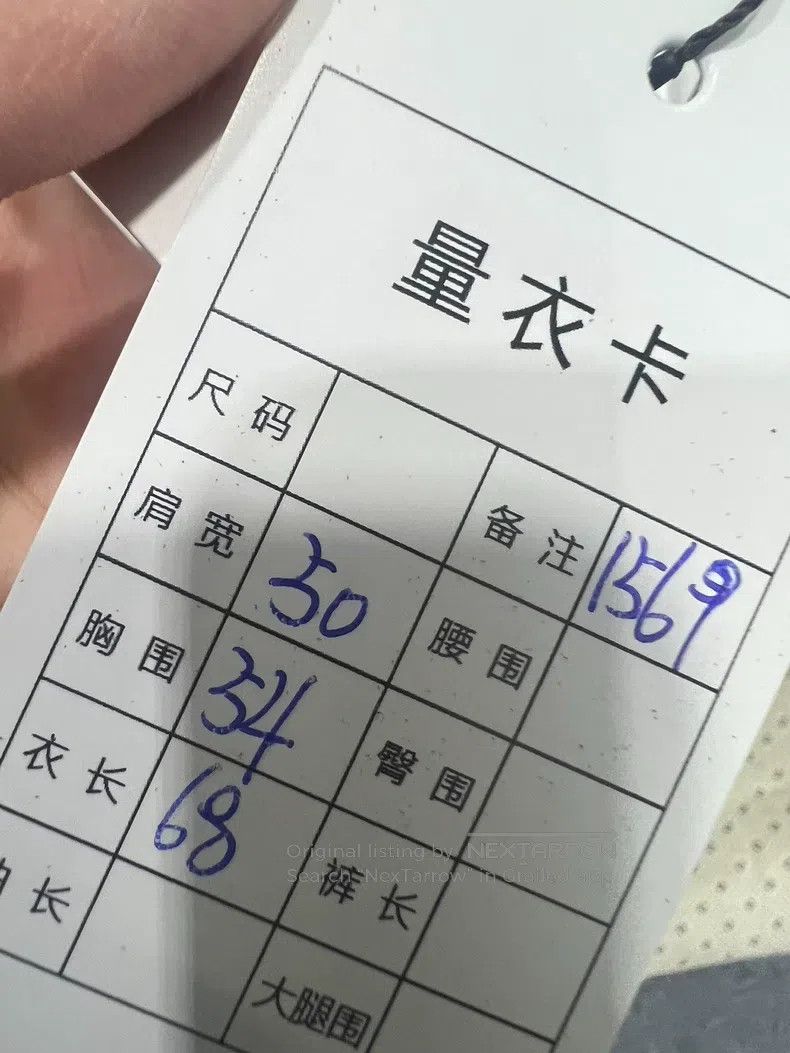 量衣卡
尺码
备注 1569
肩宽 50
腰围
胸围 54
臀围
衣长 68
裤长
长
大腿围
Original listing by NEXTARROW
Search "NexTarrow" in Grailed app